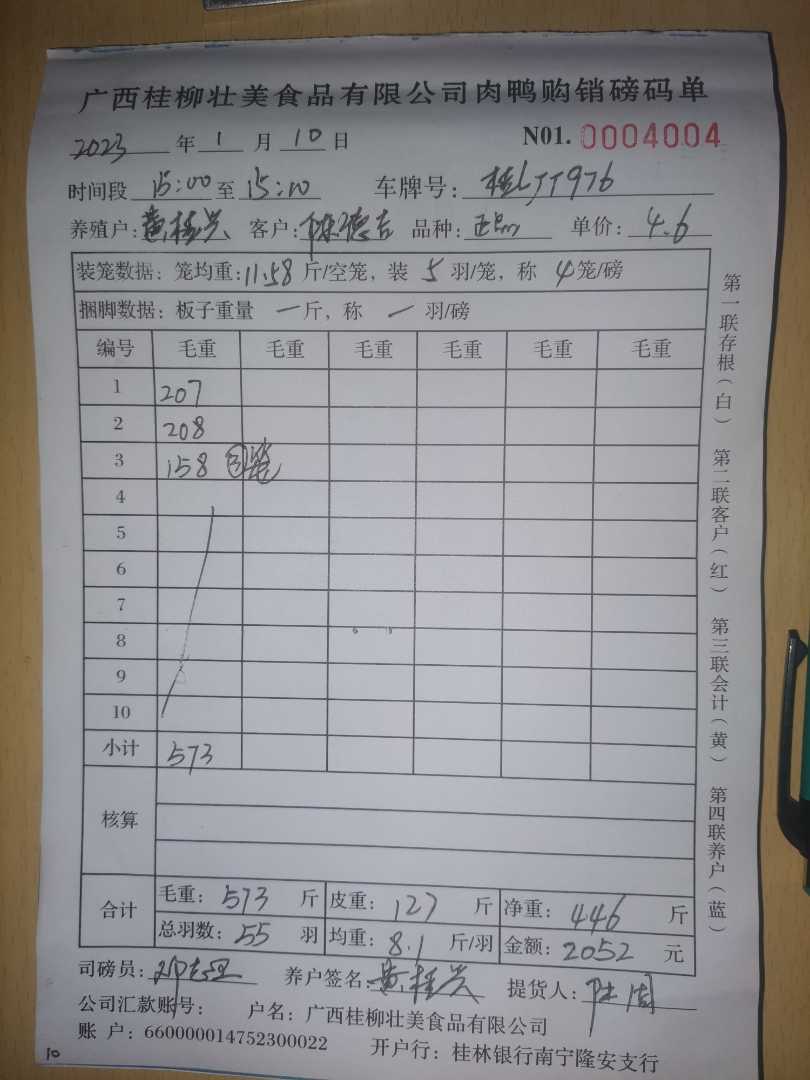 广西桂柳壮美食品有限公司肉鸭购销磅码单
2023年1月10日 N01.0004004
时间段 15:00 至 15:10 车牌号: 桂LJT976
养殖户: 黄桂兴 客户: 陈德吉 品种: 正品 单价: 4.6
装笼数据: 笼均重: 11.58 斤/空笼, 装 5 羽/笼, 称 4 笼/磅
捆脚数据: 板子重量 一 斤, 称 一 羽/磅
编号 毛重 毛重 毛重 毛重 毛重 毛重
1 207
2 208
3 158
4
5
6
7
8
9
10
小计 573
核算
合计 毛重: 573 斤 皮重: 127 斤 净重: 446 斤
总羽数: 55 羽 均重: 8.1 斤/羽 金额: 2052 元
司磅员: 养户签名: 黄桂兴 提货人:
公司汇款账号: 户名: 广西桂柳壮美食品有限公司
账 户: 660000014752300022 开户行: 桂林银行南宁隆安支行
10
第一联存根(白) 第二联客户(红) 第三联会计(黄) 第四联养户(蓝)